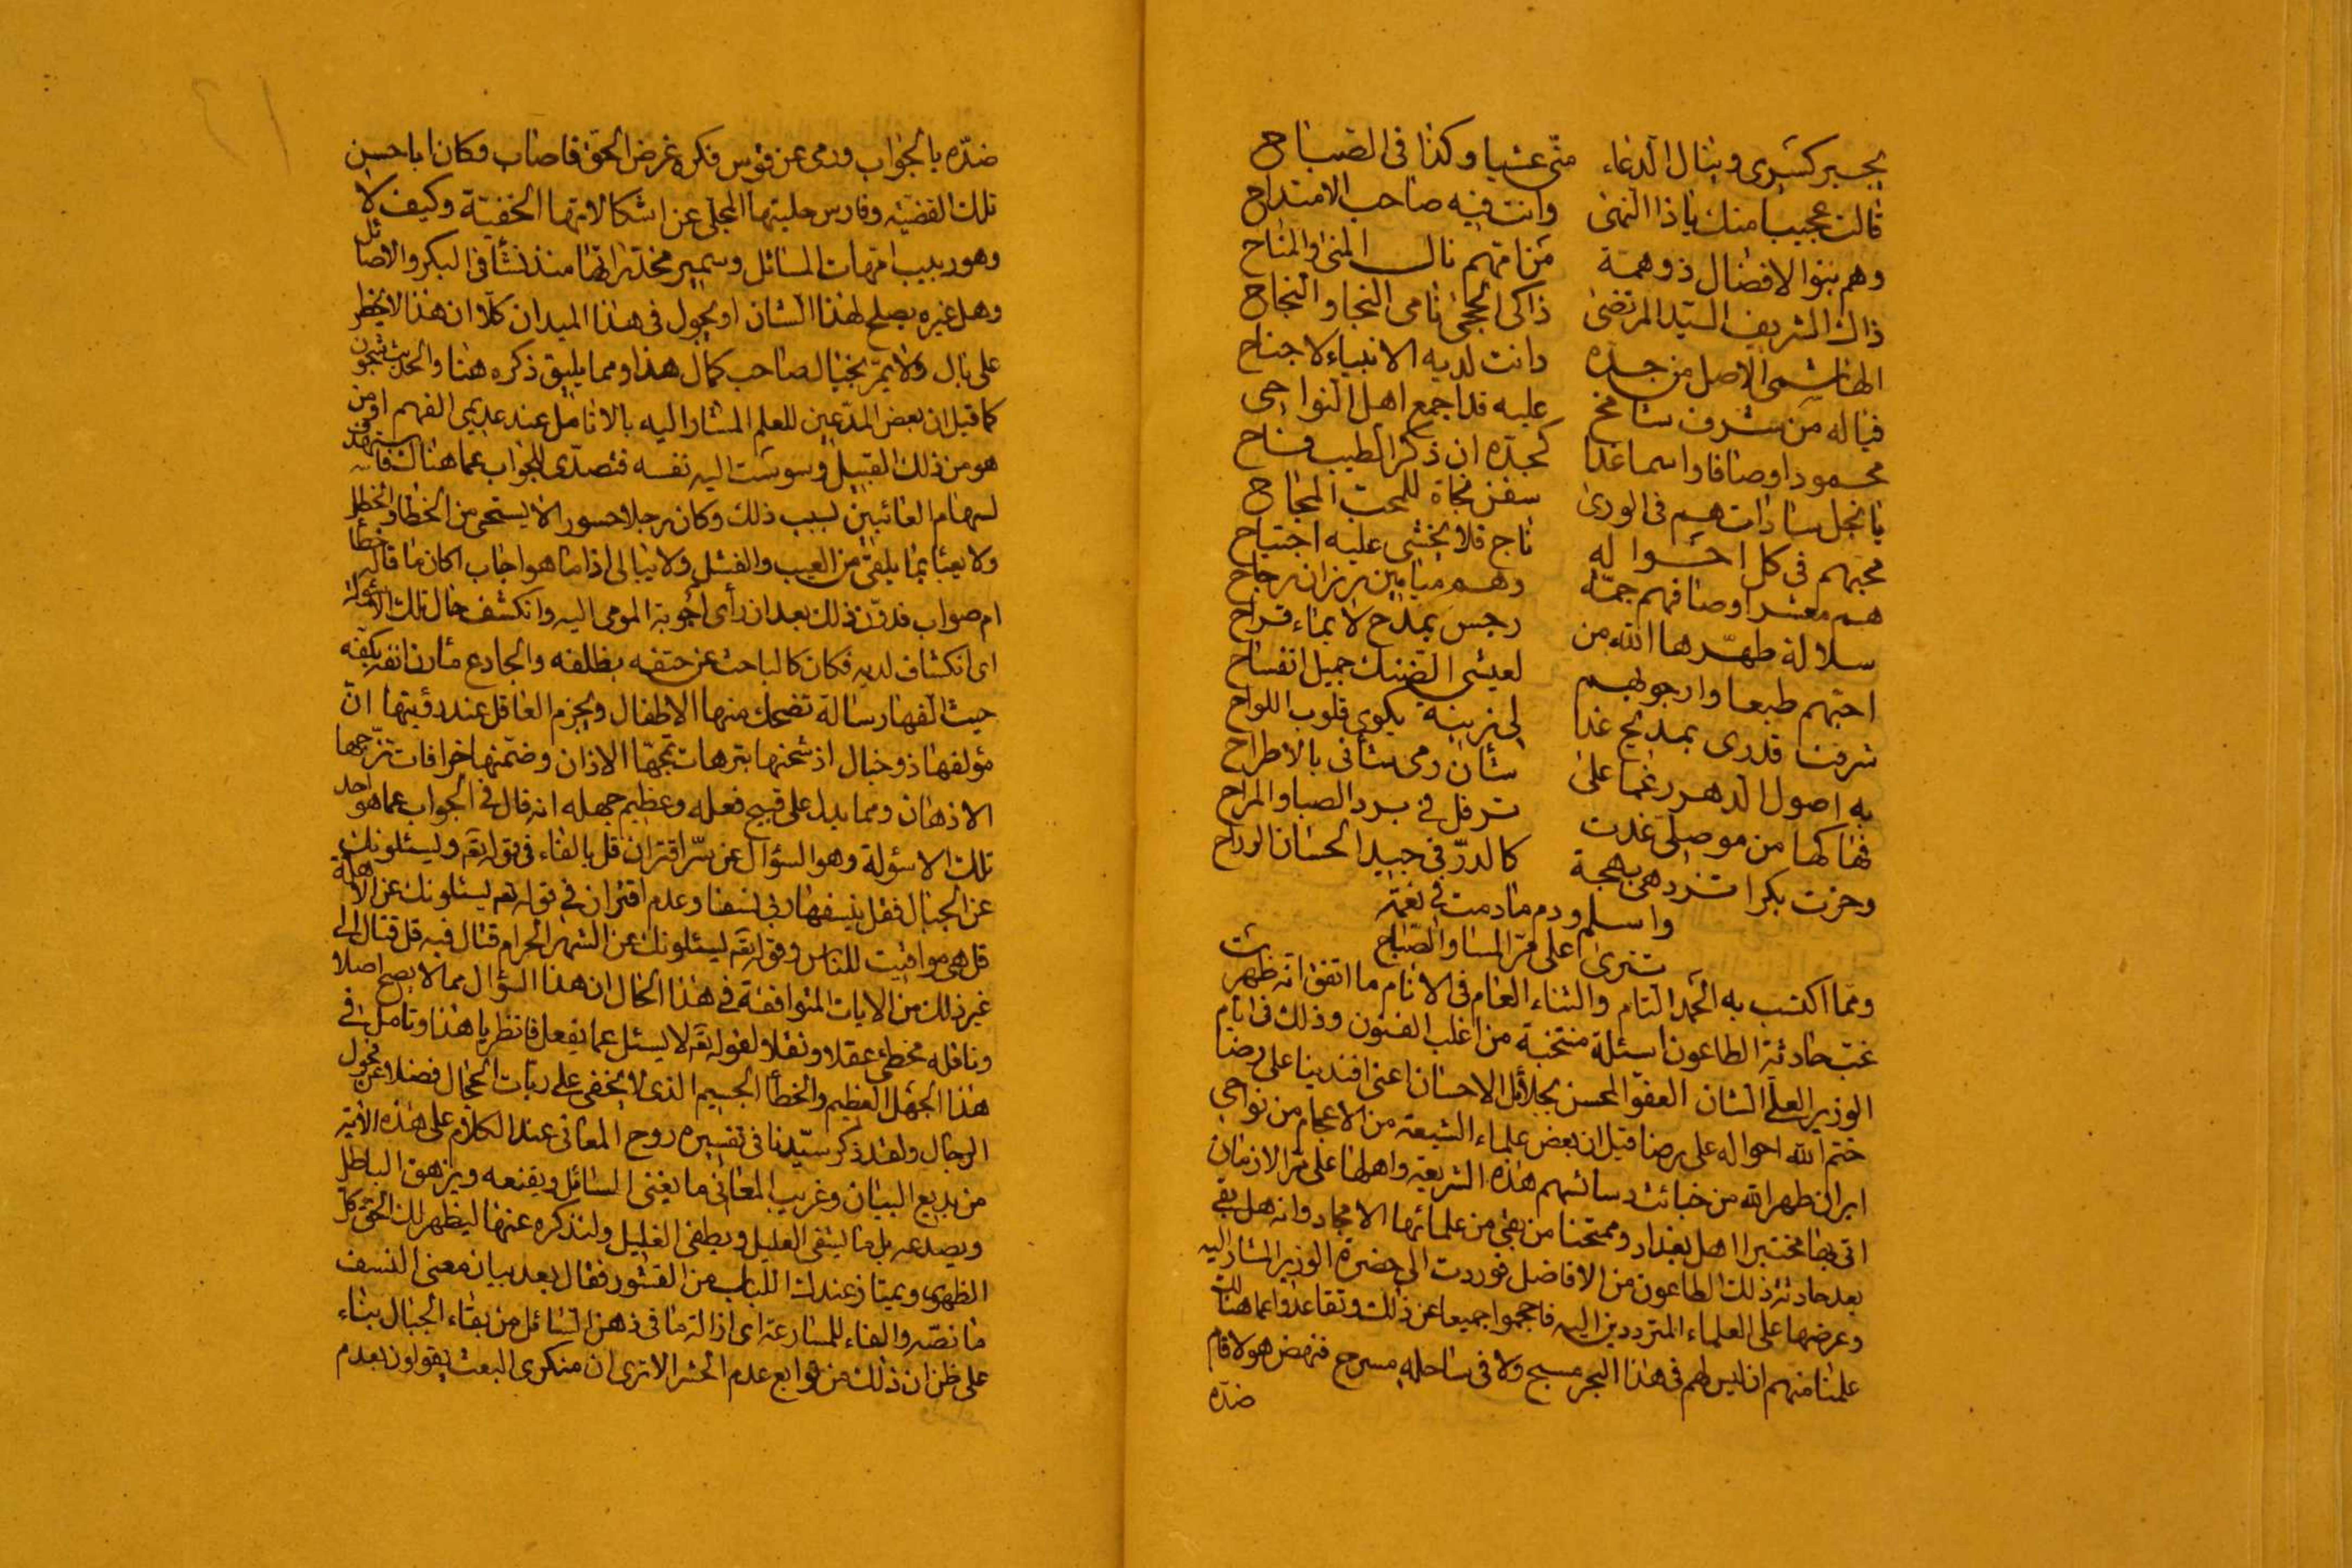 بجبر كسرى وينال الدعاء متى عشيا وكذا فى الصباح
قالت عجيب منك ياذا النهى وانت فيه صاحب الامتداح
وهم بنوا الافضال ذو همة من امهم نال المنى والمناح
ذاك الشريف السيد المرتضى ذاكى الحجى نامى النجا والنجاح
الهاشمى الاصل من جده دانت لديه الانبياء لاجناح
فياله من شرف شامخ عليه قد اجمع اهل النواحى
محمود اوصافا واسما غدا كجده ان ذكر الطيب فاح
يا نجل سادات هم فى الورى سفن نجاة للمحب
محبهم فى كل احواله ناج فلا يخشى عليه اجتياح
هم معشر اوصافهم جمة وهم ميامين رزان رجاح
سلالة طهرها الله من رجس بمدح لا بماء قراح
احبهم طبعا وارجو بهم لعيشى الضنك جميل انفساح
شرفت قدرى بمديح غدا لى زينة يكوى قلوب اللواح
به اصول الدهر رغما على شان رمى شأنى بالاطراح
فهاكها من موصلى غدت ترفل فى برد الصبا والمراح
وحزت بكرا تزدهى بهجة كالدر فى جيد الحسان الرداح
واسلم ودم مادمت فى نعمة
تترى على مر المسا والصباح
ومما اكتسب به الحمد التام والثناء العام فى الانام ما اتفق انه ظهرت
غب حادثة الطاعون اسئلة منتخبة من اغلب الفنون وذلك فى ايام
الوزير العلى الشان العفو المحسن بجلائل الاحسان اعنى افندينا على رضا
ختم الله احواله على رضا قيل ان بعض علماء الشيعة من الاعجام من نواحى
ايران طهر الله من خبائث دسائسهم هذه الشريعة واهلها على مر الازمان
اتى بها مختبرا اهل بغداد وممتحنا من بقى من علمائها الامجاد وانه هل بقى
بعد حادثة ذلك الطاعون من الافاضل فوردت الى حضرة الوزير المشار اليه
وعرضها على العلماء المترددين اليه فاحجموا جميعا عن ذلك وتقاعدوا عما هنالك
علمنا منهم ان ليس لهم فى هذا البحر مسبح ولا فى ساحله مسرح فنهض هو لا فام
ضده
ضده بالجواب ورمى عن قوس فكره غرض الحق فاصاب فكان ابا حسن
تلك القضية وفارس حلبتها المجلى عن اشكالاتها الخفية وكيف لا
وهو ربيب امهات المسائل وسمير مخدراتها منذ نشأ فى البكر والاصائل
وهل غيره يصلح لهذا الشان او يجول فى هذا الميدان كلا ان هذا لا يخطر
على بال ولا يمر بخيال صاحب كمال هذا ومما يليق ذكره هنا والحديث شجون
كما قيل ان بعض المدعين للعلم المشار اليه بالانامل عند عديمى الفهم او من
هو من ذلك القبيل وسوست اليه نفسه فتصدى للجواب عما هنالك فاستهدف
لسهام العائبين لسبب ذلك وكان رجلا جسورا لا يستحى من الخطا والخطل
ولا يعبأ بما يلقى من العيب والفشل ولا يبالى اذا ما هو اجاب اكان ما قاله خطأ
ام صواب فدون ذلك بعد ان رأى اجوبة المومى اليه وانكشف حال تلك الاسولة
اى انكشاف لديه فكان كالباحث عن حتفه بظلفه والجادع مارن انفه بكفه
حيث الفها رسالة تضحك منها الاطفال ويجزم العاقل عند رؤيتها ان
مؤلفها ذو خبال اذ شحنها بترهات تمجها الاذان وضمنها خرافات تزجها
الاذهان ومما يدل على قبيح فعله وعظيم جهله انه قال فى الجواب عما هو احد
تلك الاسؤلة وهو السؤال عن سر اقتران قل بالفاء فى قوله تعه ويسئلونك
عن الجبال فقل ينسفها ربى نسفا وعدم اقتران فى قوله تعه يسئلونك عن الاهلة
قل هى مواقيت للناس وقوله تعه يسئلونك عن الشهر الحرام قتال فيه قل قتال الى
غير ذلك من الايات المتوافقة فى هذا الحال ان هذا السؤال مما لا يصح اصلا
وناقله مخطئ عقلا ونقلا لقوله تعه لا يسئل عما يفعل فانظر يا هذا وتامل فى
هذا الجهل العظيم والخطأ الجسيم الذى لا يخفى على ربات الحجال فضلا عن فحول
الرجال ولقد ذكر سيدنا فى تفسيره روح المعانى عند الكلام على هذه الاية
من بديع البيان وغريب المعانى ما يغنى السائل ويقنعه ويزهق الباطل
ويصدعه بل ما يشفى العليل ويطفى الغليل ولنذكره عنها ليظهر لك الحق كل
الظهور ويمتاز عندك اللباب من القشور فقال بعد بيان معنى النسف
ما نصه والفاء للمسارعة اى ازالة ما فى ذهن السائل من بقاء الجبال بناء
على ظن ان ذلك من توابع عدم الحشر الا ترى ان منكرى البعث يقولون بعدم